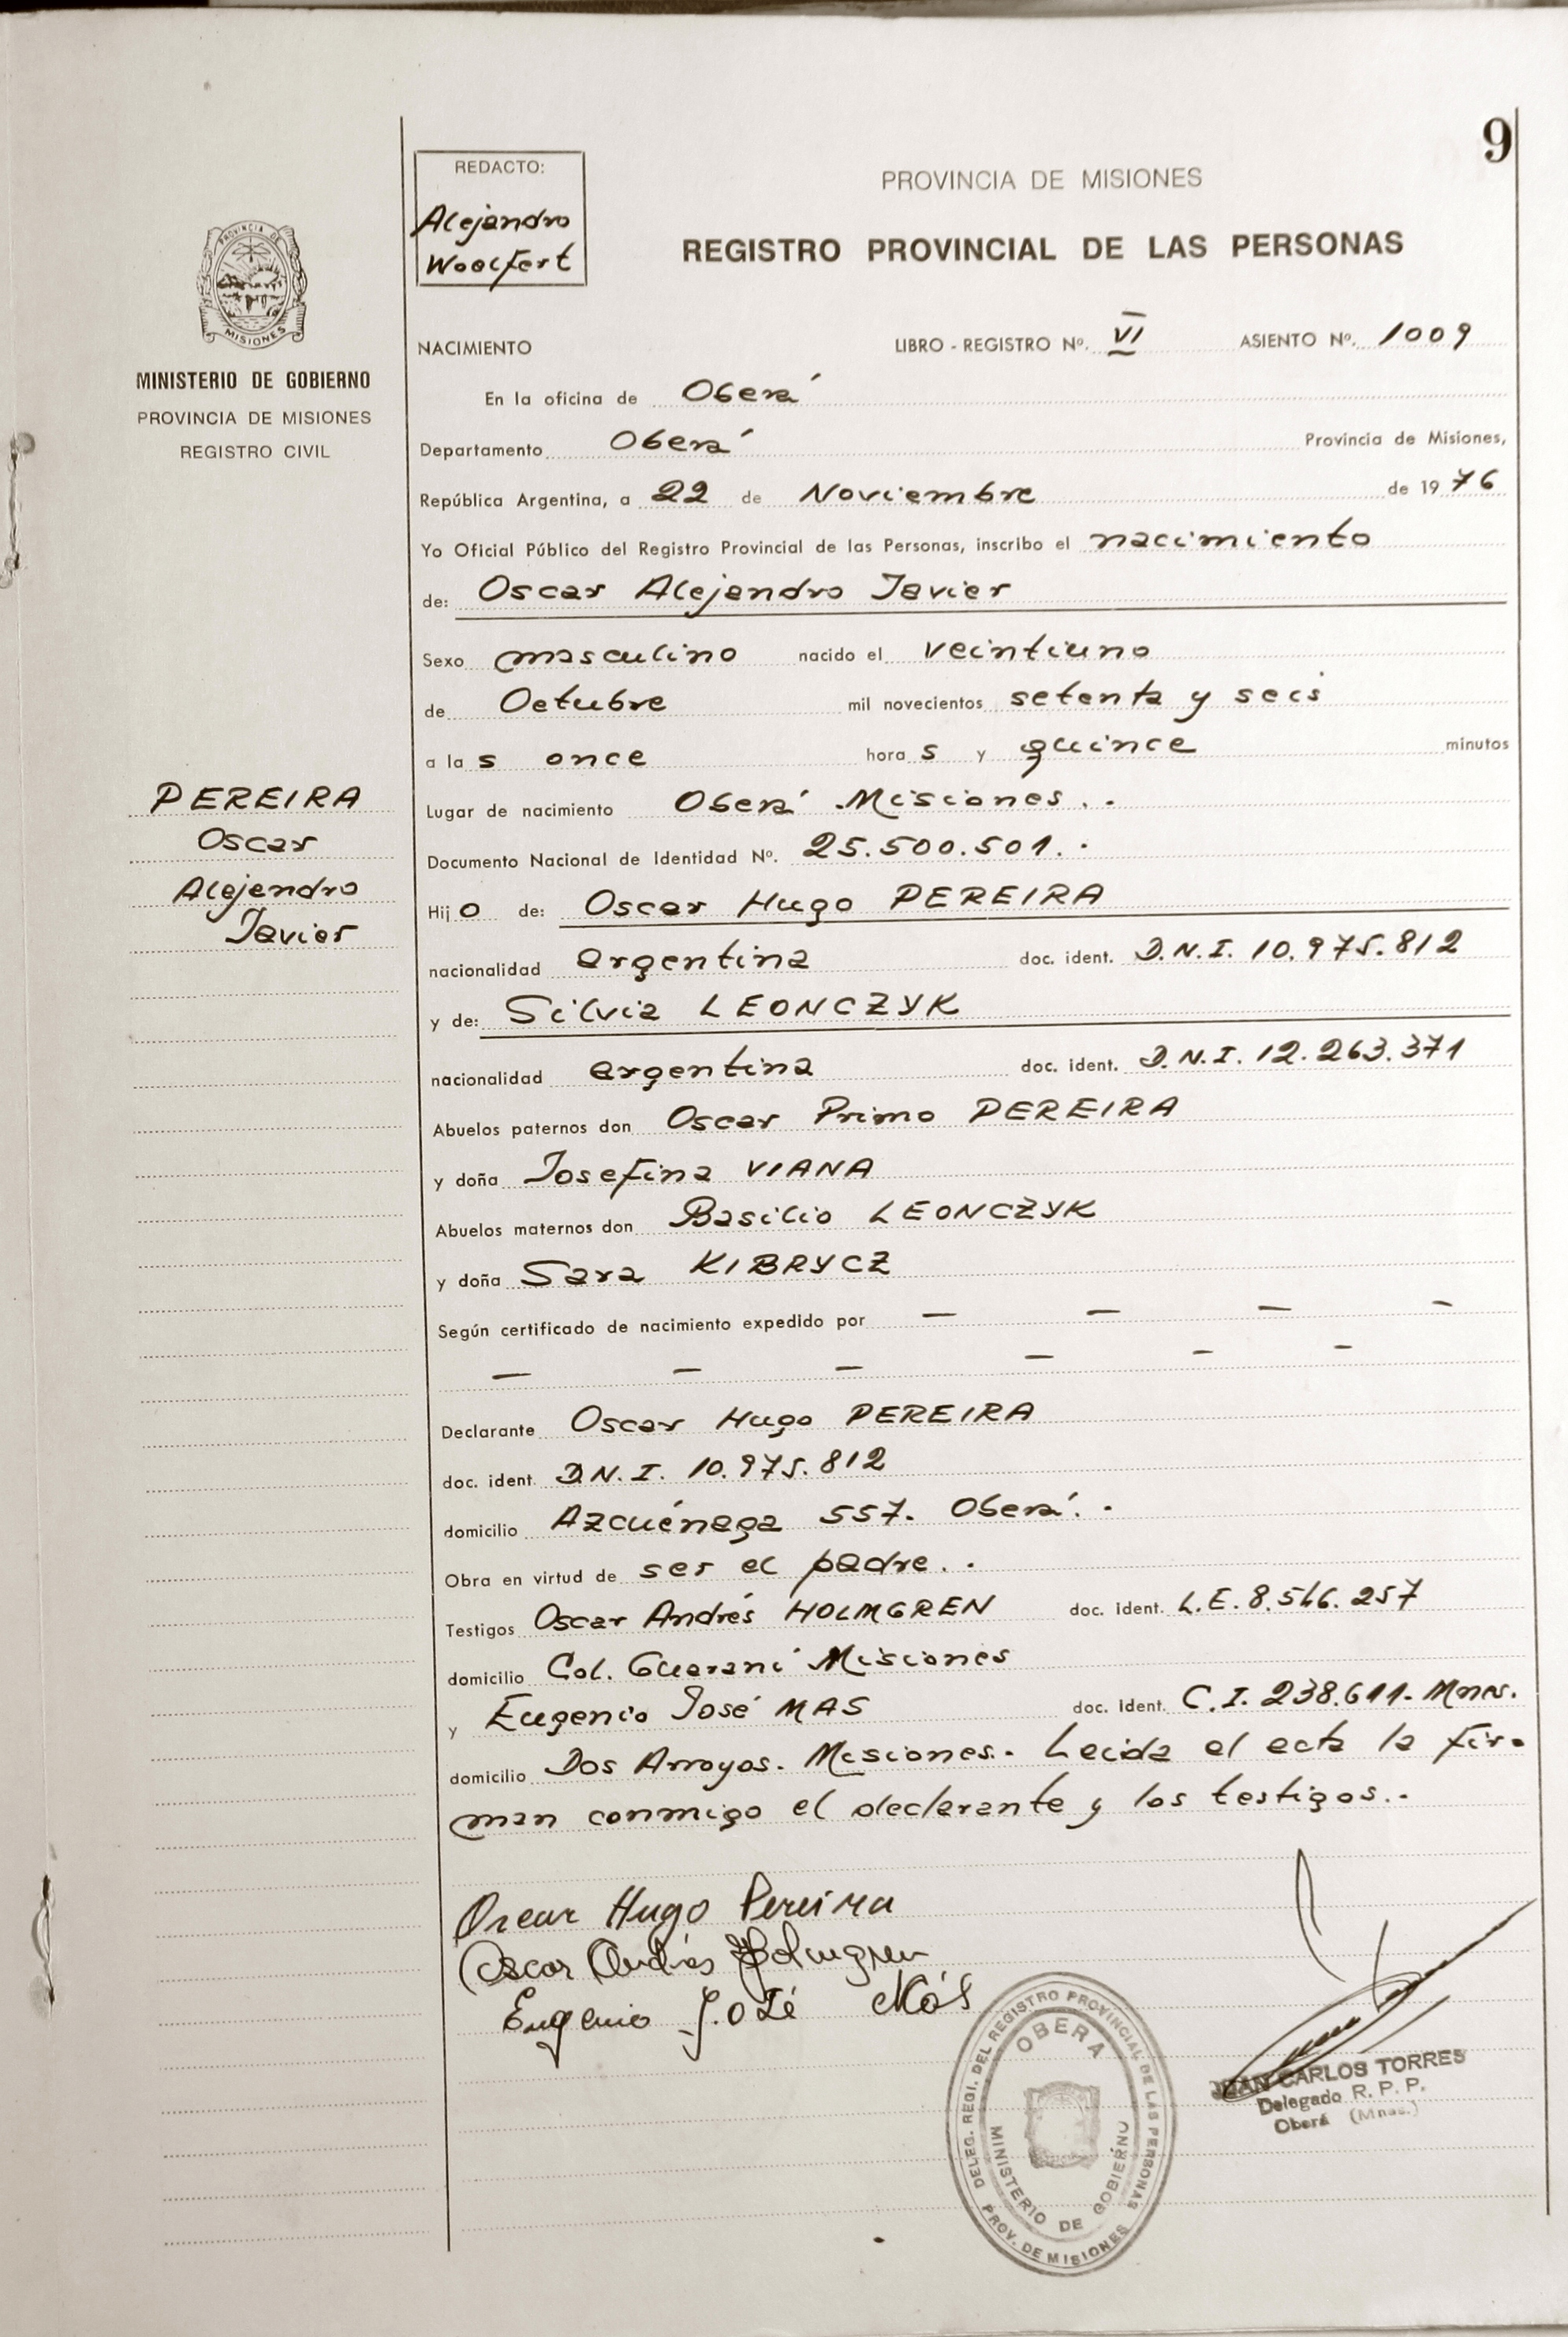 9
REDACTO:
Alejandro
Woolfert
PROVINCIA DE MISIONES
REGISTRO PROVINCIAL DE LAS PERSONAS
PROVINCIA DE
MISIONES
MINISTERIO DE GOBIERNO
PROVINCIA DE MISIONES
REGISTRO CIVIL
NACIMIENTO LIBRO - REGISTRO Nº. VI ASIENTO Nº. 1009
En la oficina de Oberá
Departamento Oberá Provincia de Misiones,
República Argentina, a 22 de Noviembre de 1976
Yo Oficial Público del Registro Provincial de las Personas, inscribo el nacimiento
de: Oscar Alejandro Javier
Sexo masculino nacido el veintiuno
de Octubre mil novecientos setenta y seis
a las once horas y quince minutos
PEREIRA
Oscar
Alejandro
Javier
Lugar de nacimiento Oberá Misiones..
Documento Nacional de Identidad Nº. 25.500.501..
Hijo de: Oscar Hugo PEREIRA
nacionalidad argentina doc. ident. D.N.I. 10.975.812
y de: Silvia LEONCZYK
nacionalidad argentina doc. ident. D.N.I. 12.263.371
Abuelos paternos don Oscar Primo PEREIRA
y doña Josefina VIANA
Abuelos maternos don Basilio LEONCZYK
y doña Sara KIBRYCZ
Según certificado de nacimiento expedido por — — — —
— — — — — —
Declarante Oscar Hugo PEREIRA
doc. ident. D.N.I. 10.975.812
domicilio Azcuénaga 557. Oberá..
Obra en virtud de ser el padre..
Testigos Oscar Andrés HOLMGREN doc. ident. L.E. 8.546.257
domicilio Col. Guaraní Misiones
y Eugenio José MAS doc. ident. C.I. 238.611- Mnes.
domicilio Dos Arroyos. Misiones.- Leida el acta la fir-
man conmigo el declarante y los testigos..
Oscar Hugo Pereira
Oscar Andrés Holmgren
Eugenio José Más
DELEG. REGI. DEL REGISTRO PROVINCIAL DE LAS PERSONAS
OBERA
MINISTERIO DE GOBIERNO
PROV. DE MISIONES
JUAN CARLOS TORRES
Delegado R. P. P.
Oberá (Mnes.)